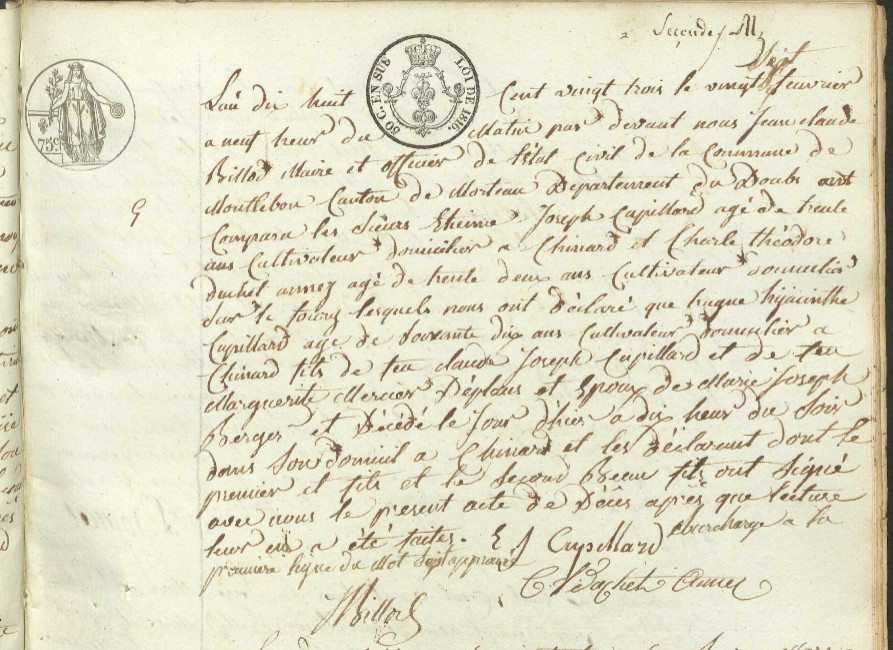 Seconde
50 C. EN SUS LOI DE 1816.
75c
9
L'an dix huit Cent vingt trois le vingt sept feuvrier
a neuf heur du Matin par devant nous Jean claude
Billod Maire et officier de l'état Civil de la Commune de
Montlebon Canton de Morteau Département du Doubs ont
Comparu les Sieurs Etienne Joseph Cupillard agé de trente
ans Cultivateur domicilier a Chinard et Charle théodore
agé de trente deux ans Cultivateur Domicilié
Sur le lesquels nous ont déclaré que hugue hÿacinthe
Cupillard age de Soixante dix ans Cultivateur domicilier a
Chinard fils de feu claude Joseph Cupillard et de feu
Marguerite Mercier Déplans et Epoux de Marie Joseph
Berger et Décédé le Jour d'hier a dix heur du Soir
dans Son domicil a Chinard et les déclarant dont le
premier et fils et le Second Beau fils ont Signé
avec nous le present acte de Décès après que lecture
leur en a été faites. E J Cupillard Surcharge a la
premiere ligne du Mot Sept approuvé
Billod